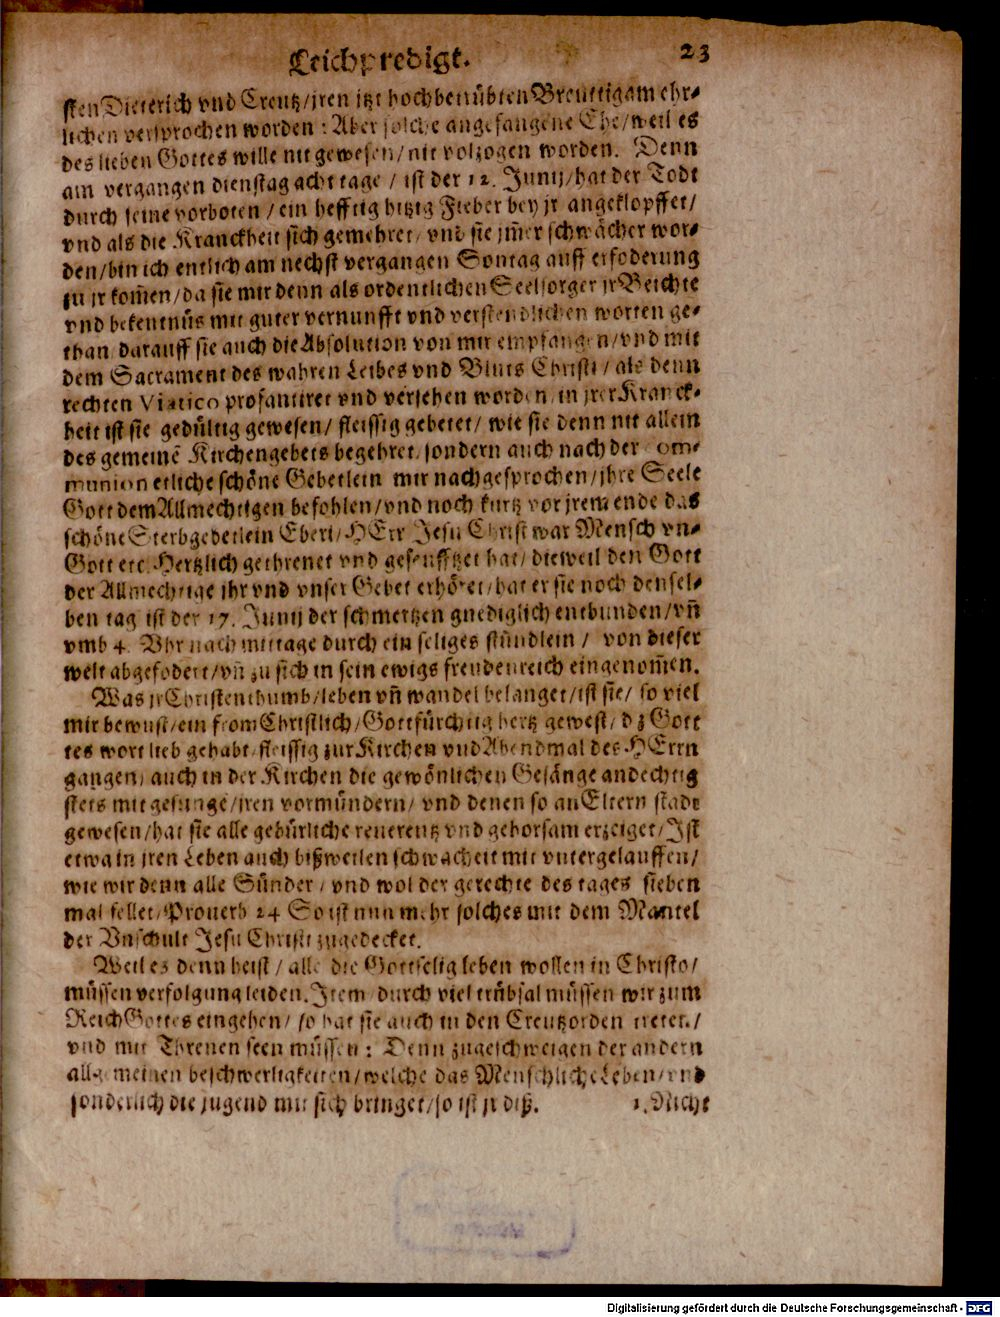 Leichpredigt. 23
sten Dieterich vnd Creutz/jren jtzt hochbetrübten Breuttigam ehr-
lichen versprochen worden: Aber solche angefangene Ehe/weil es
des lieben Gottes wille nit gewesen/nit volzogen worden. Denn
am vergangen dienstag acht tage / ist der 12. Junij/hat der Todt
durch seine vorboten / ein hefftig hitzig Fieber bey jr angeklopffet/
vnd als die Kranckheit sich gemehret/ vnd sie jm̃er schwächer wor-
den/bin ich entlich am nechst vergangen Sontag auff erfoderung
zu jr kom̃en/da sie mir denn als ordentlichen Seelsorger jr Beichte
vnd bekentnüs mit guter vernunfft vnd verstendlichen worten ge-
than/darauff sie auch die Absolution von mir empfangen/vnd mit
dem Sacrament des wahren Leibes vnd Bluts Christi / als denn
rechten Viatico profantiret vnd versehen worden/in jrer Kranck-
heit ist sie gedültig gewesen/ fleissig gebetet/ wie sie denn nit allein
des gemeinē Kirchengebets begehret/sondern auch nach der Com-
munion etliche schöne Gebetlein mir nachgesprochen/jhre Seele
Gott dem Allmechtigen befohlen/vnd noch kurtz vor jrem ende das
schöne Sterbgebetlein Eberi/HErr Jesu Christ war Mensch vn-
Gott etc. Hertzlich gethrenet vnd geseufftzet hat/ dieweil den Gott
der Allmechtige jhr vnd vnser Gebet erhöret/hat er sie noch densel-
ben tag ist der 17. Junij der schmertzen gnediglich entbunden/vñ
vmb 4. Vhr nach mittage durch ein seliges stündlein / von dieser
welt abgefodert/vñ zu sich in sein ewigs freudenreich eingenom̃en.
Was jr Christenthumb/leben vñ wandel belanget/ist sie/ so viel
mir bewust/ein from Christlich/Gottfürchtig hertz gewest/ dz Got
tes wort lieb gehabt/fleissig zur Kirchen vnd Abendmal des HErrn
gangen/ auch in der Kirchen die gewönlichen Gesänge andechtig
stets mit gesungē/jren vormündern/ vnd denen so an Eltern stadt
gewesen/hat sie alle gebürliche reuerentz vnd gehorsam erzeiget/Ist
etwa in jren Leben auch bißweilen schwacheit mit vntergelauffen/
wie wir denn alle Sünder / vnd wol der gerechte des tages sieben
mal fellet/Prouerb 24 So ist nun mehr solches mit dem Mantel
der Vnschult Jesu Christi zugedecket.
Weil es denn heist / alle die Gottselig leben wollen in Christo/
müssen verfolgung leiden. Item durch viel trübsal müssen wir zum
Reich Gottes eingehen/ so hat sie auch in den Creutzorden treten/
vnd mit Threnen seen müssen: Denn zugeschweigen der andern
allgemeinen beschwerligkeiten/welche das Menschliche Leben/vnd
sonderlich die jugend mit sich bringet/so ist jr diß. 1. Nicht
Digitalisierung gefördert durch die Deutsche Forschungsgemeinschaft - DFG